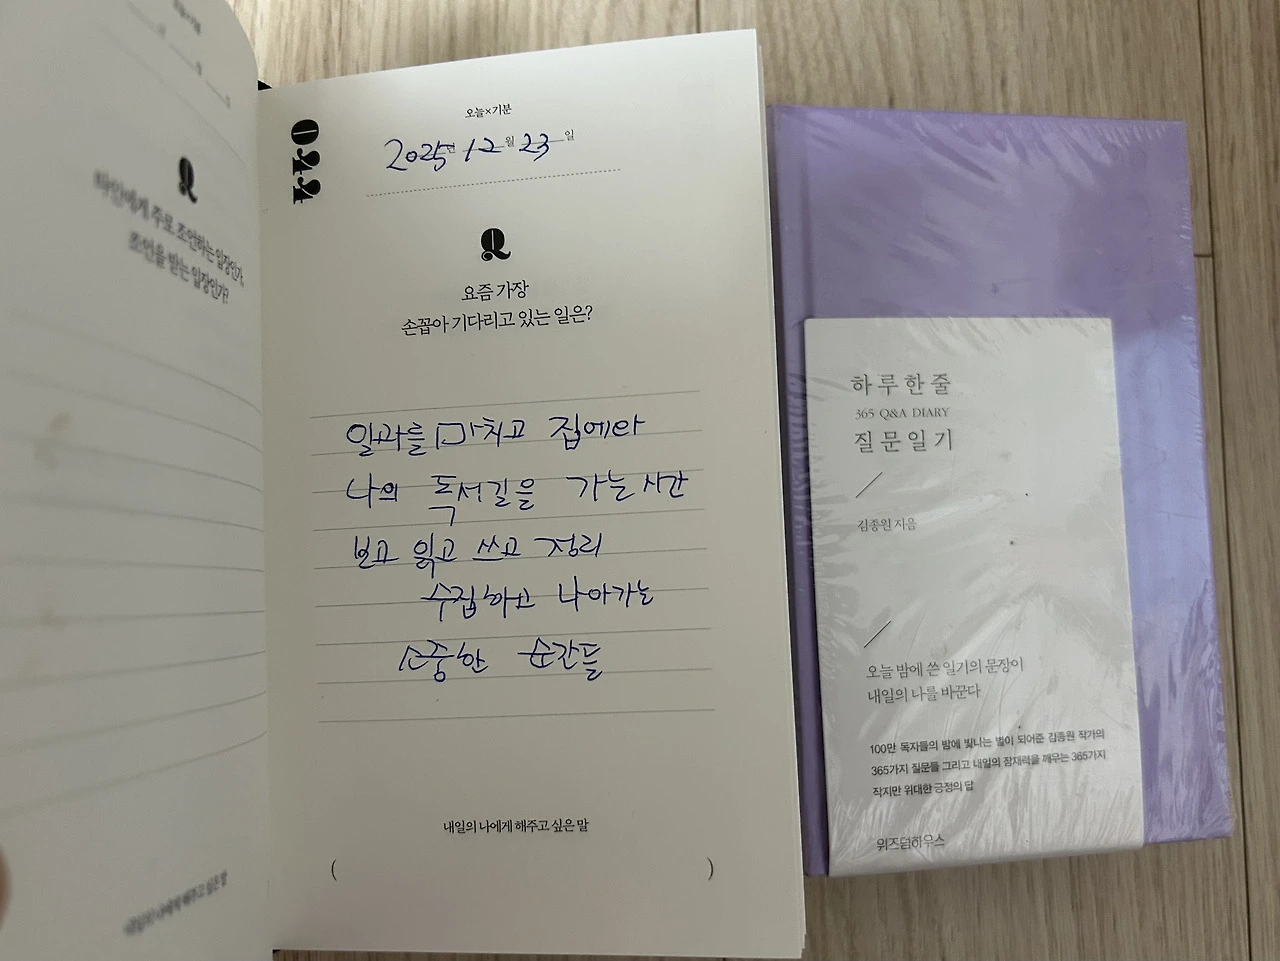 Q
타인에게 주로 조언하는 입장인가,
조언을 받는 입장인가?
내일의 나에게 해주고 싶은 말
044
오늘×기분
2025년 12월 23일
Q
요즘 가장
손꼽아 기다리고 있는 일은?
일과를 마치고 집에와
나의 독서길을 가는 시간
보고 읽고 쓰고 정리
수집하고 나아가는
소중한 순간들
내일의 나에게 해주고 싶은 말
( )
하루한줄
365 Q&A DIARY
질문일기
김종원 지음
오늘 밤에 쓴 일기의 문장이
내일의 나를 바꾼다
100만 독자들의 밤에 빛나는 별이 되어준 김종원 작가의
365가지 질문들 그리고 내일의 잠재력을 깨우는 365가지
작지만 위대한 긍정의 답
위즈덤하우스